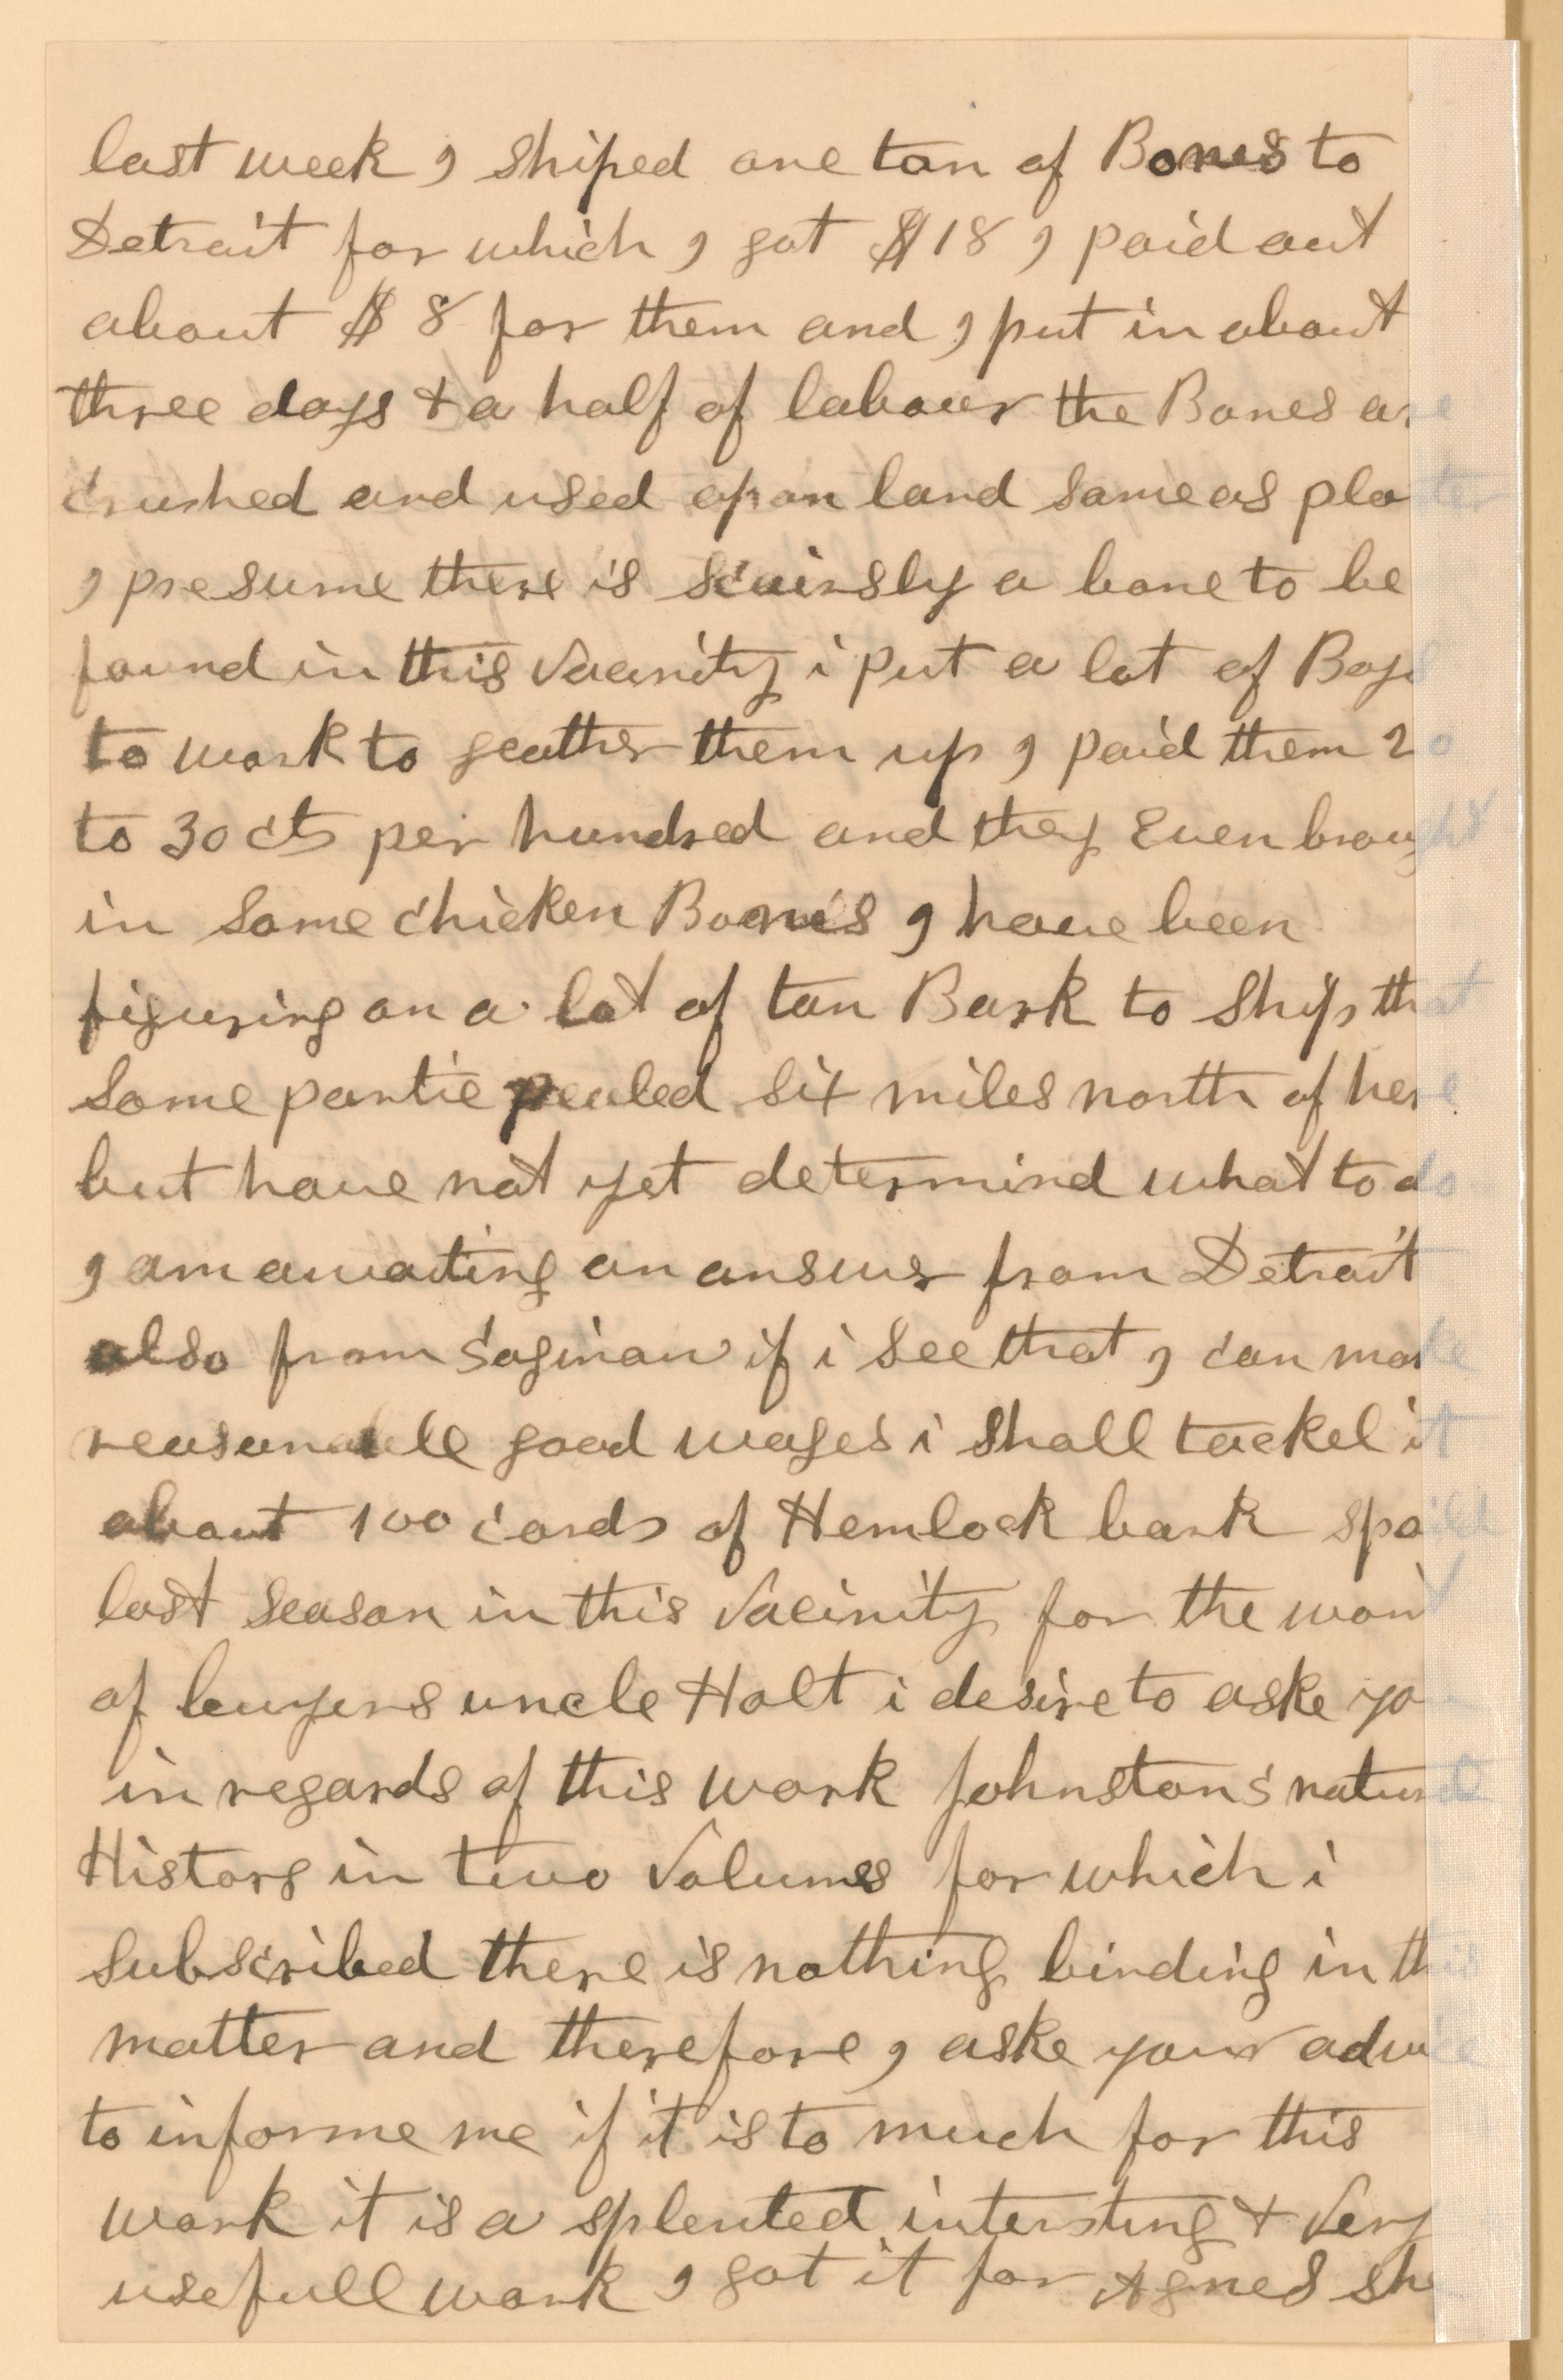 last week I shiped one ton of Bones to
Detroit for which I got $18 I paid out
about $8 for them and I put in about
three days & a half of labour the Bones are
crushed and used upon land same as plaster
I presume there is scuirsly a bone to be
found in this Vacinity i put a lot of Boys
to work to geather them up I paid them 20
to 30 cts per hundred and they Even brought
in some chicken Bones I have been
figuring on a lot of tan Bark to ship that
some partie pealed six miles north of here
but have not yet determind what to do
I am awaiting an answer from Detroit
also from Saginaw if i see that I can make
reasonable good wages i shall tackel it
about 100 cords of Hemlock bark spoild
last season in this Vacinity for the want
of buyers uncle Holt i desire to aske yo
in regards of this work Johnston's natural
History in two Volumes for which i
subscribed there is nothing binding in this
matter and therefore I aske your advice
to informe me if it is to much for this
work it is a splented intersting & Very
usefull work I got it for Agnes she